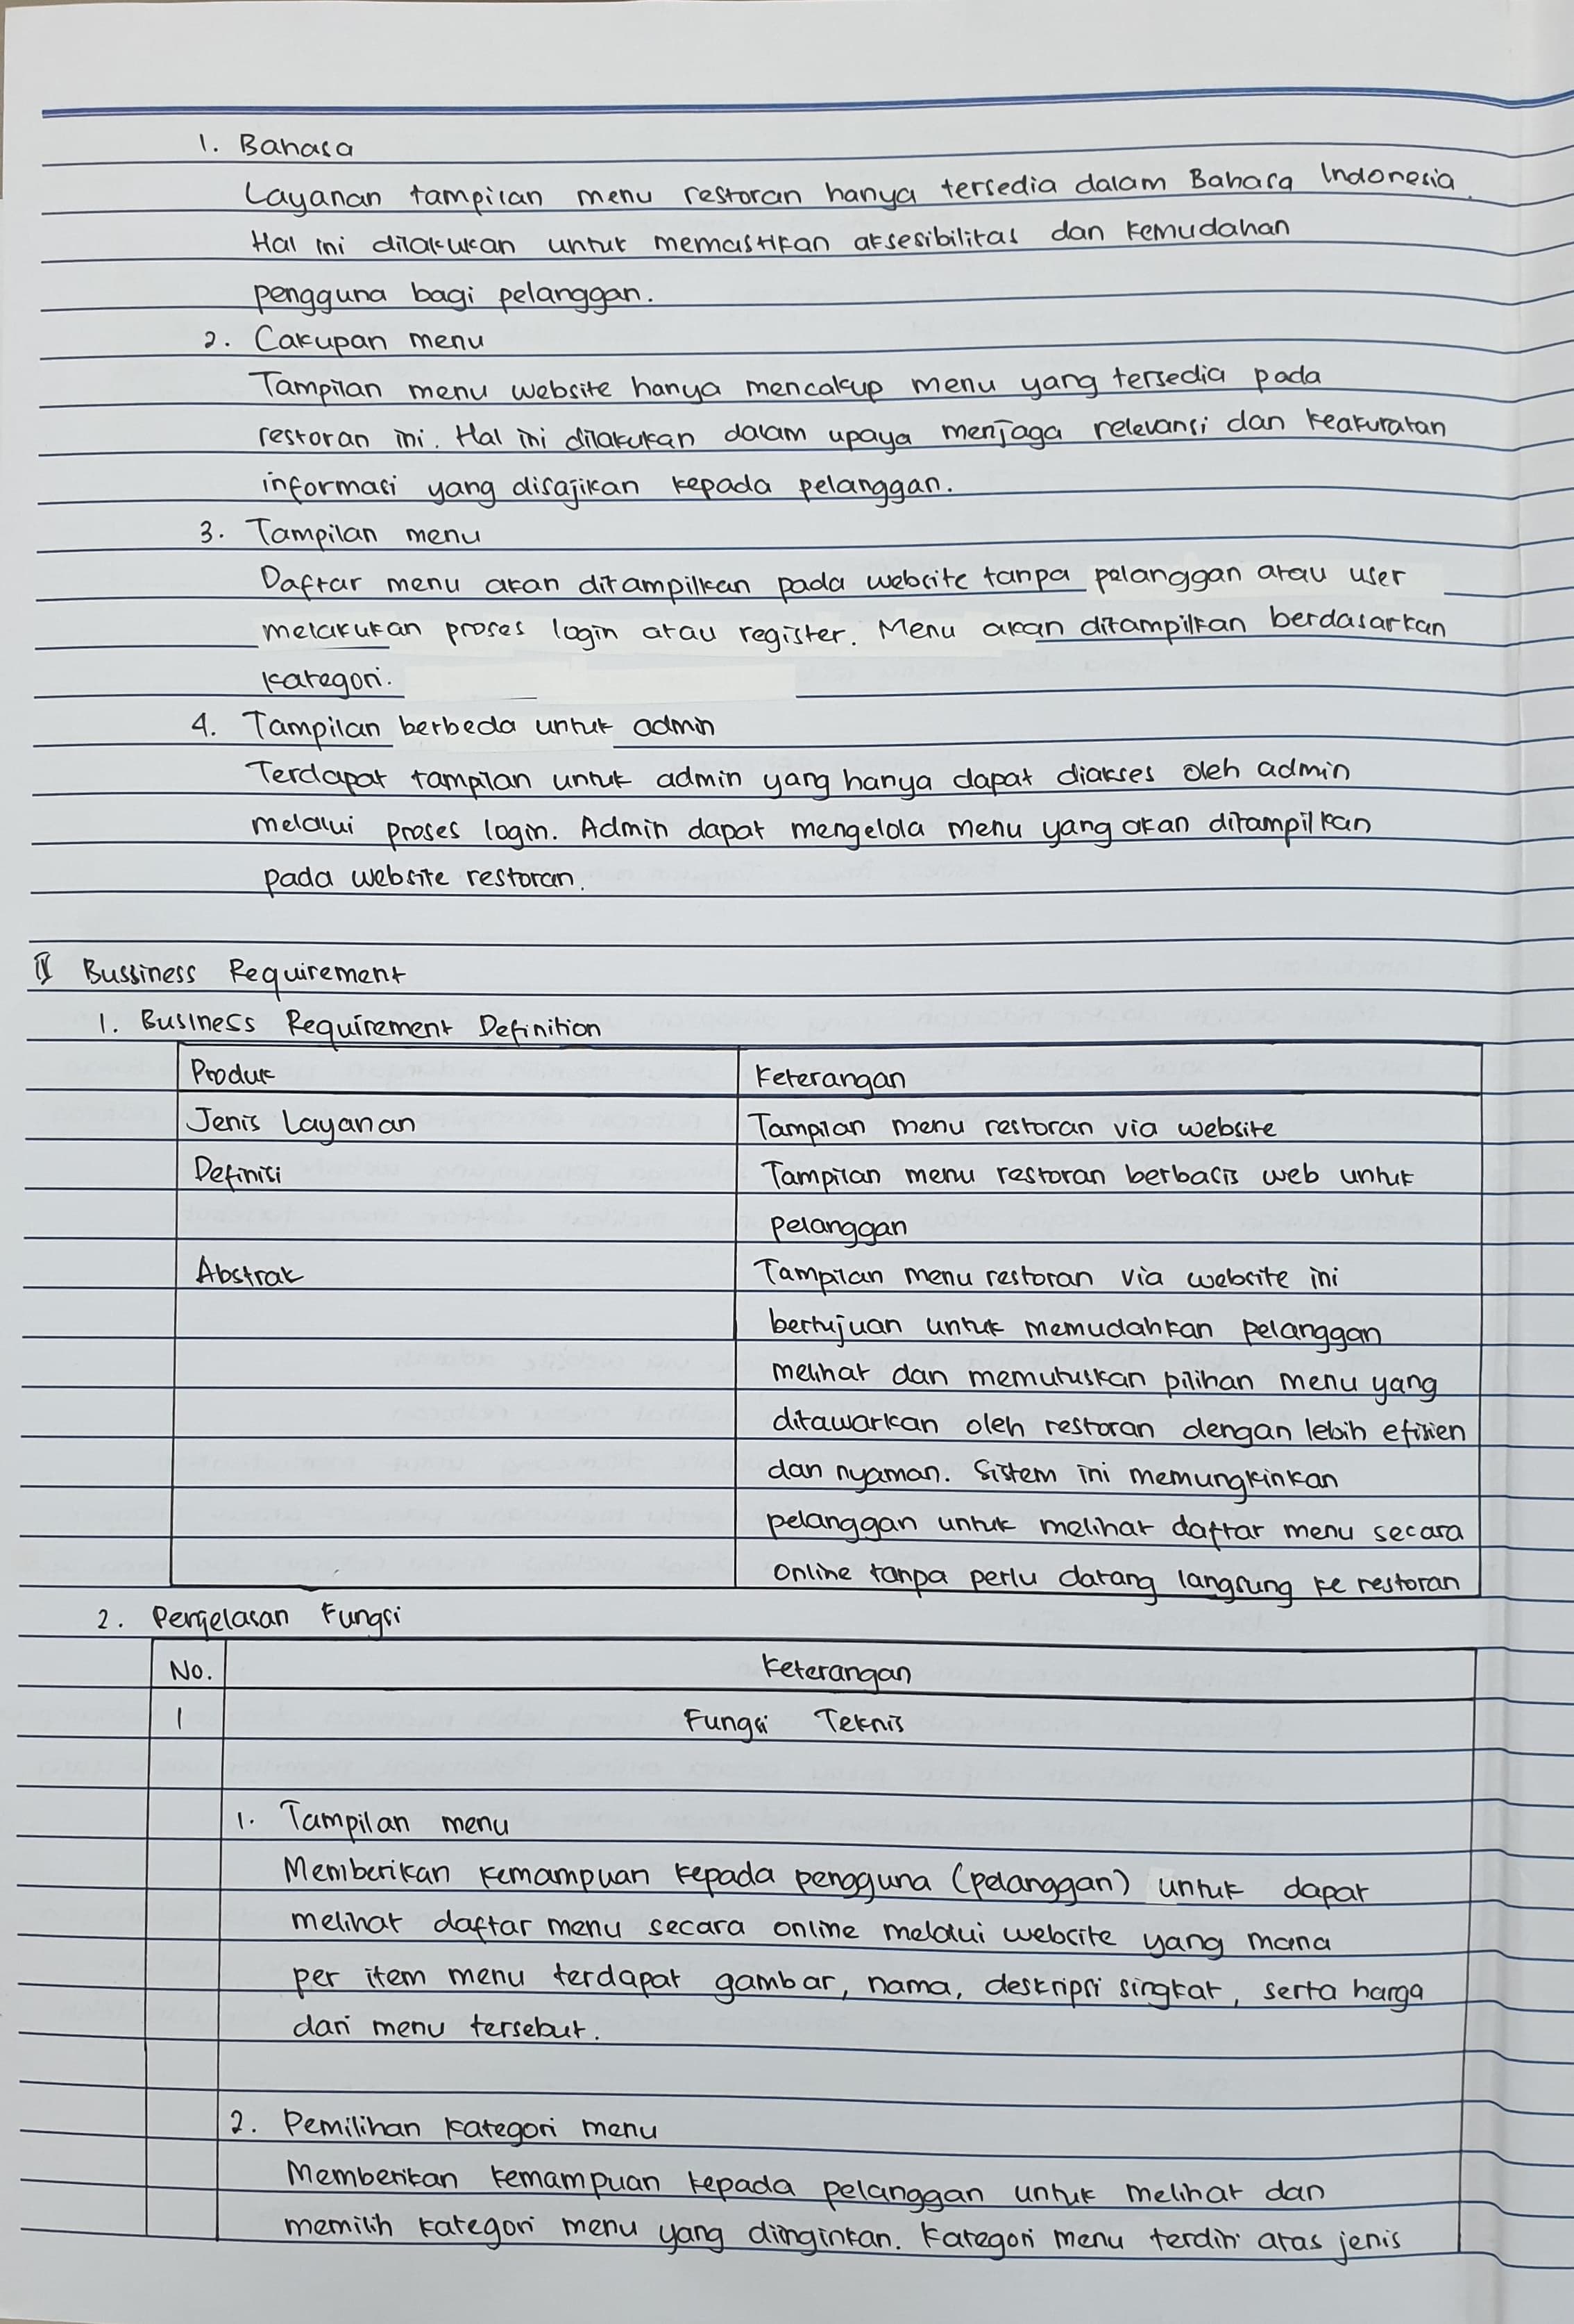 1. Bahasa
Layanan tampilan menu restoran hanya tersedia dalam Bahasa Indonesia.
Hal ini dilakukan untuk memastikan aksesibilitas dan kemudahan
pengguna bagi pelanggan.
2. Cakupan menu
Tampilan menu website hanya mencakup menu yang tersedia pada
restoran ini. Hal ini dilakukan dalam upaya menjaga relevansi dan keakuratan
informasi yang disajikan kepada pelanggan.
3. Tampilan menu
Daftar menu akan ditampilkan pada website tanpa pelanggan atau user
melakukan proses login atau register. Menu akan ditampilkan berdasarkan
kategori.
4. Tampilan berbeda untuk admin
Terdapat tampilan untuk admin yang hanya dapat diakses oleh admin
melalui proses login. Admin dapat mengelola menu yang akan ditampilkan
pada website restoran.
II Bussiness Requirement
1. Business Requirement Definition
Produk Keterangan
Jenis Layanan Tampilan menu restoran via website
Definisi Tampilan menu restoran berbasis web untuk
pelanggan
Abstrak Tampilan menu restoran via website ini
bertujuan untuk memudahkan pelanggan
melihat dan memutuskan pilihan menu yang
ditawarkan oleh restoran dengan lebih efisien
dan nyaman. Sistem ini memungkinkan
pelanggan untuk melihat daftar menu secara
online tanpa perlu datang langsung ke restoran
2. Penjelasan Fungsi
No. Keterangan
1 Fungsi Teknis
1. Tampilan menu
Memberikan kemampuan kepada pengguna (pelanggan) untuk dapat
melihat daftar menu secara online melalui website yang mana
per item menu terdapat gambar, nama, deskripsi singkat, serta harga
dari menu tersebut.
2. Pemilihan kategori menu
Memberikan kemampuan kepada pelanggan untuk melihat dan
memilih kategori menu yang diinginkan. Kategori menu terdiri atas jenis